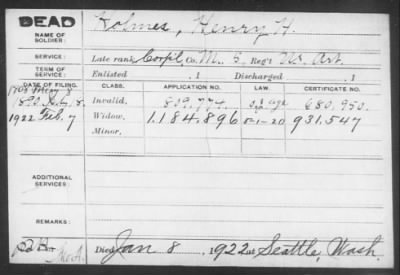 DEAD
NAME OF SOLDIER:
Holmes, Henry H.
SERVICE:
Late rank, Corp'l, Co. M., 5, Reg't U.S. Art.
TERM OF SERVICE:
Enlisted , 1 Discharged , 1
DATE OF FILING. CLASS. APPLICATION NO. LAW. CERTIFICATE NO.
1890 July 8. Invalid. 809.774. 680,950.
1922 Feb. 7 Widow, 1.184.896 5-1-20 931.547
Minor,
ADDITIONAL SERVICES:
REMARKS:
Died Jan 8, 1922 at Seattle, Wash.